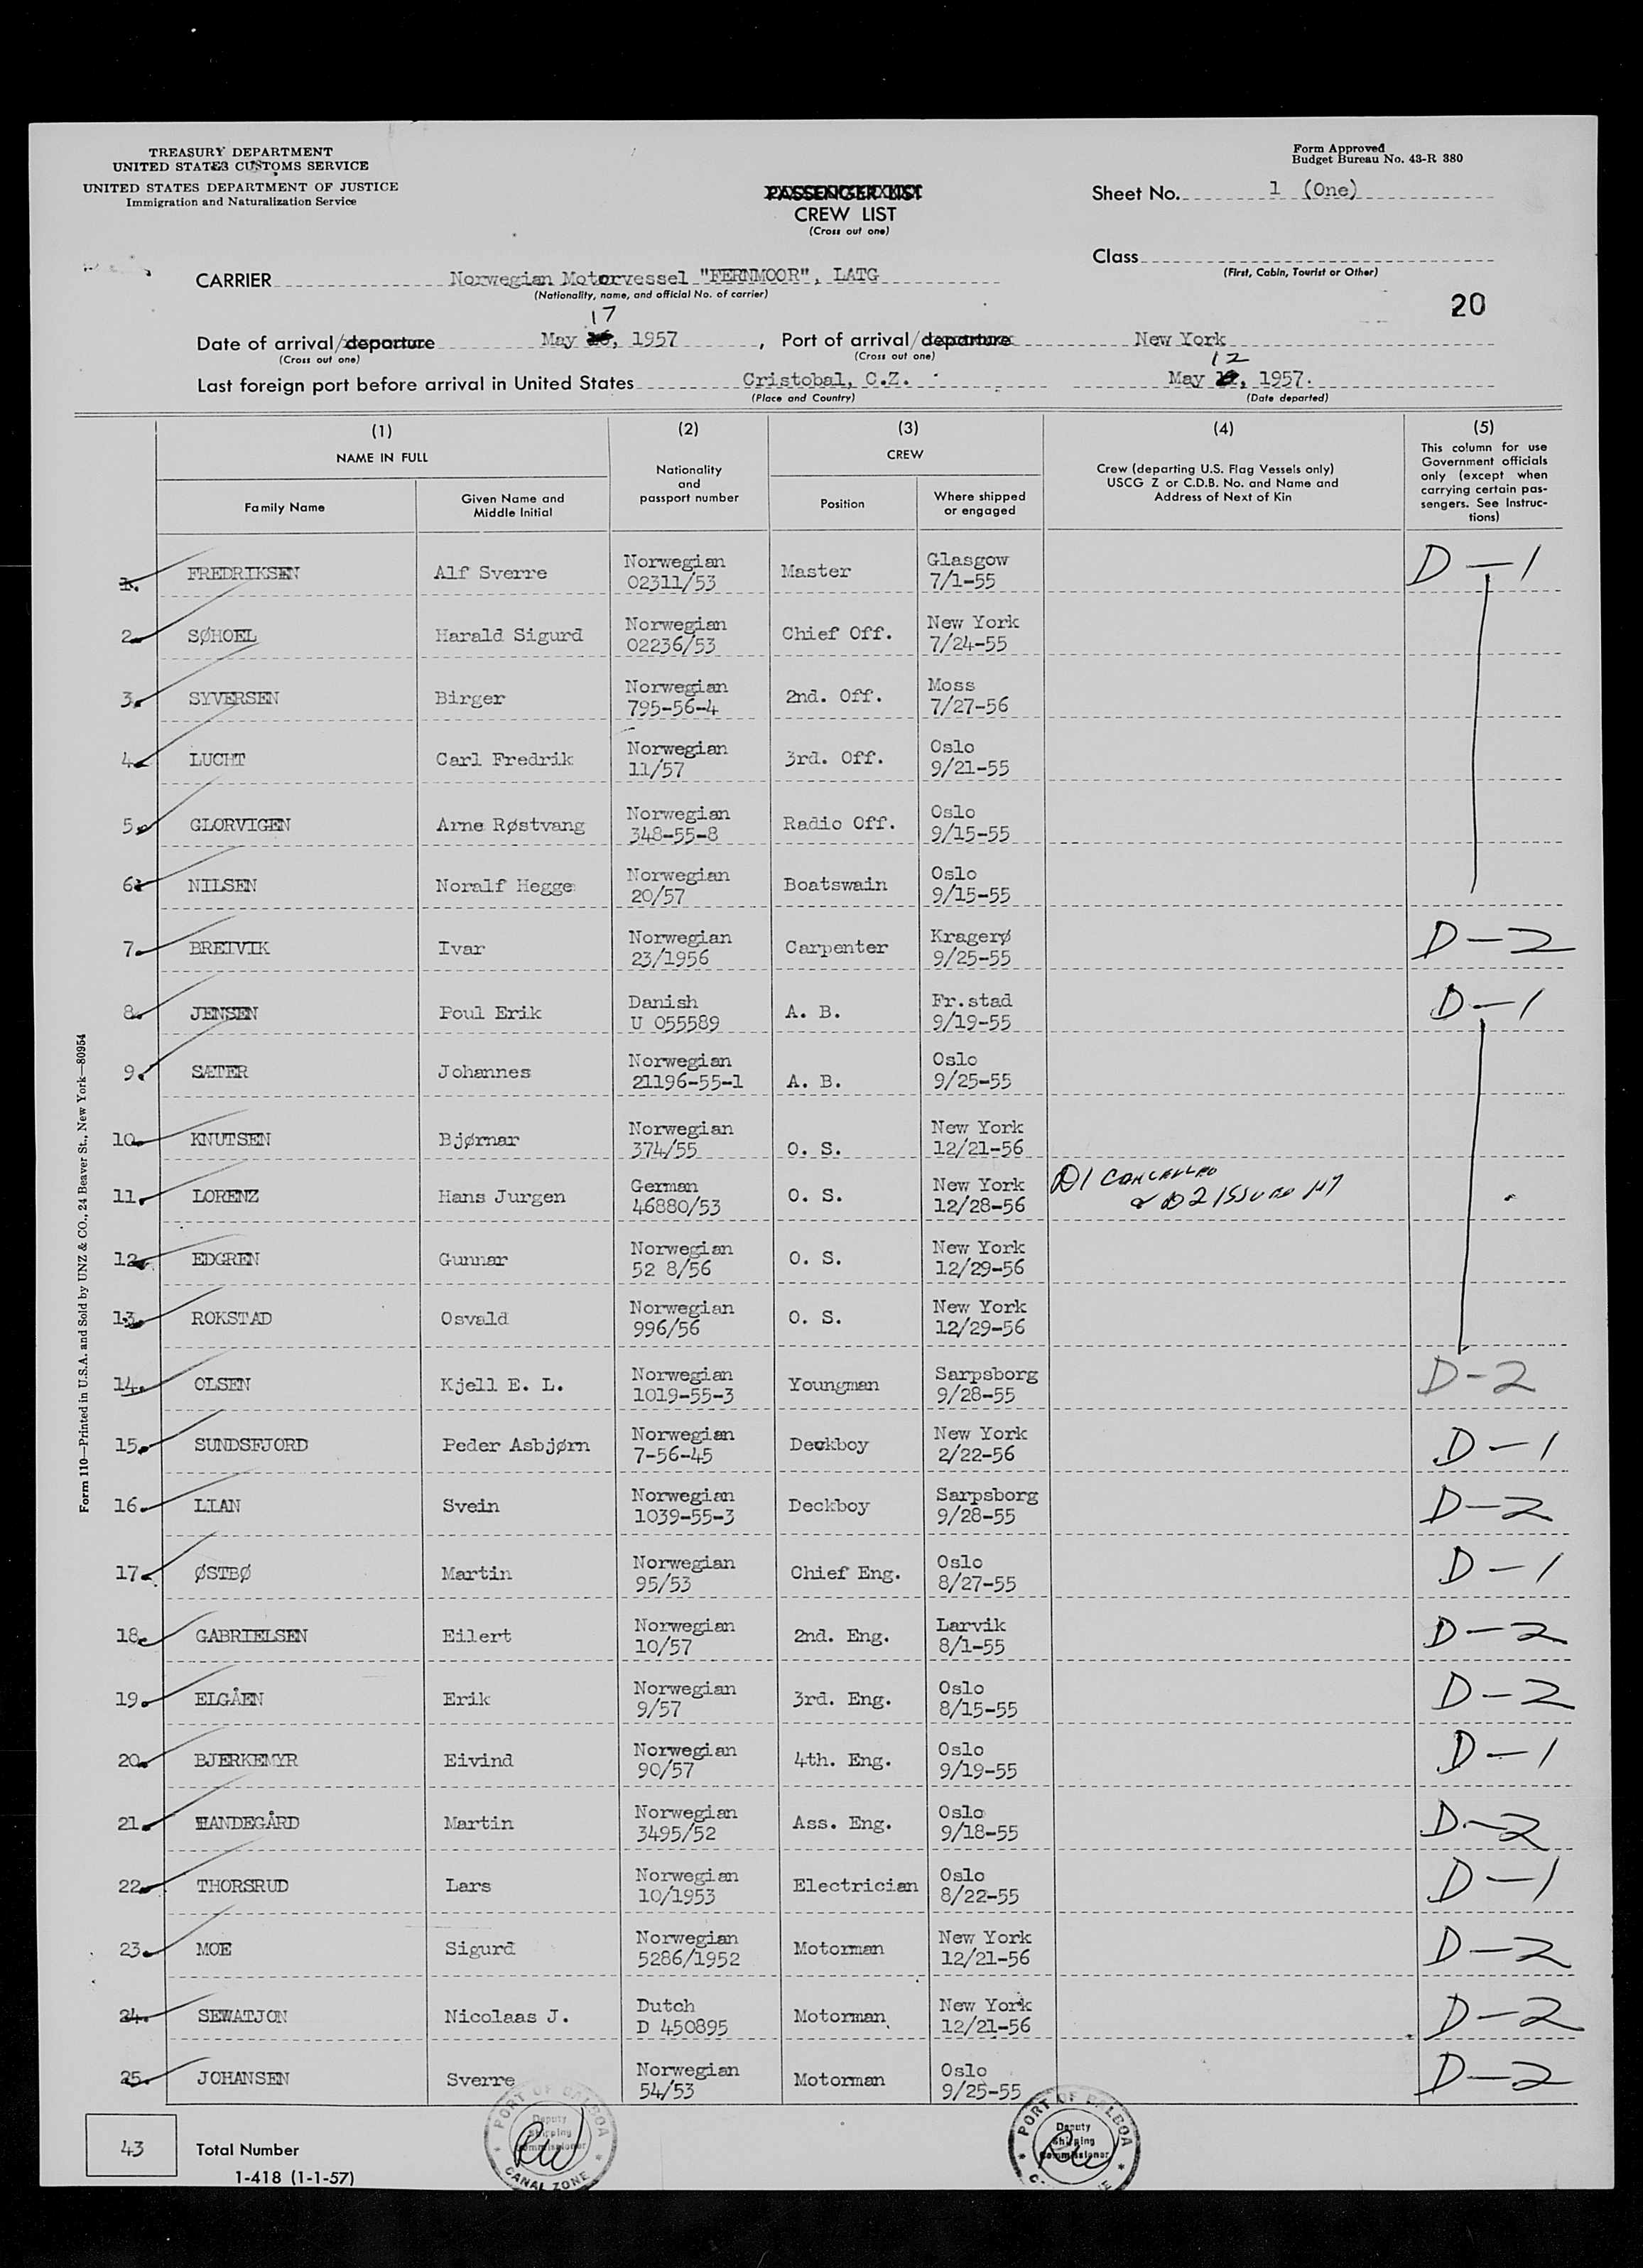 TREASURY DEPARTMENT
UNITED STATES CUSTOMS SERVICE
UNITED STATES DEPARTMENT OF JUSTICE
Immigration and Naturalization Service
Form Approved
Budget Bureau No. 43-R 380
PASSENGER LIST
CREW LIST
(Cross out one)
Sheet No. 1 (One)
Class
(First, Cabin, Tourist or Other)
CARRIER Norwegian Motorvessel "FERNMOOR", LATG
(Nationality, name, and official No. of carrier)
20
17
Date of arrival/departure May 1957, Port of arrival/departure New York
(Cross out one) (Cross out one)
12
Last foreign port before arrival in United States Cristobal, C.Z. May , 1957.
(Place and Country) (Date departed)
(1) (2) (3) (4) (5)
NAME IN FULL
Family Name
Given Name and Middle Initial
Nationality and passport number
CREW
Position
Where shipped or engaged
Crew (departing U.S. Flag Vessels only)
USCG Z or C.D.B. No. and Name and
Address of Next of Kin
This column for use
Government officials
only (except when
carrying certain pas-
sengers. See Instruc-
tions)
1. FREDRIKSEN Alf Sverre Norwegian 02311/53 Master Glasgow 7/1-55 D-1
2. SØHOEL Harald Sigurd Norwegian 02236/53 Chief Off. New York 7/24-55
3. SYVERSEN Birger Norwegian 795-56-4 2nd. Off. Moss 7/27-56
4. LUCHT Carl Fredrik Norwegian 11/57 3rd. Off. Oslo 9/21-55
5. GLORVIGEN Arne Røstvang Norwegian 348-55-8 Radio Off. Oslo 9/15-55
6. NILSEN Noralf Hegge Norwegian 20/57 Boatswain Oslo 9/15-55
7. BREIVIK Ivar Norwegian 23/1956 Carpenter Kragerø 9/25-55 D-2
8. JENSEN Poul Erik Danish U 055589 A. B. Fr.stad 9/19-55 D-1
9. SÆTER Johannes Norwegian 21196-55-1 A. B. Oslo 9/25-55
10. KNUTSEN Bjørnar Norwegian 374/55 O. S. New York 12/21-56
11. LORENZ Hans Jurgen German 46880/53 O. S. New York 12/28-56 D1 CANCELLED & D2 ISSUED NY
12. EDGREN Gunnar Norwegian 52 8/56 O. S. New York 12/29-56
13. ROKSTAD Osvald Norwegian 996/56 O. S. New York 12/29-56
14. OLSEN Kjell E. L. Norwegian 1019-55-3 Youngman Sarpsborg 9/28-55 D-2
15. SUNDSFJORD Peder Asbjørn Norwegian 7-56-45 Deckboy New York 2/22-56 D-1
16. LIAN Svein Norwegian 1039-55-3 Deckboy Sarpsborg 9/28-55 D-2
17. ØSTBØ Martin Norwegian 95/53 Chief Eng. Oslo 8/27-55 D-1
18. GABRIELSEN Eilert Norwegian 10/57 2nd. Eng. Larvik 8/1-55 D-2
19. ELGÅEN Erik Norwegian 9/57 3rd. Eng. Oslo 8/15-55 D-2
20. BJERKEMYR Eivind Norwegian 90/57 4th. Eng. Oslo 9/19-55 D-1
21. HANDEGÅRD Martin Norwegian 3495/52 Ass. Eng. Oslo 9/18-55 D-2
22. THORSRUD Lars Norwegian 10/1953 Electrician Oslo 8/22-55 D-1
23. MOE Sigurd Norwegian 5286/1952 Motorman New York 12/21-56 D-2
24. SEWATJON Nicolaas J. Dutch D 450895 Motorman New York 12/21-56 D-2
25. JOHANSEN Sverre Norwegian 54/53 Motorman Oslo 9/25-55 D-2
43 Total Number
1-418 (1-1-57)
PORT OF BALBOA
Deputy
Shipping
Commissioner
CANAL ZONE
PORT OF BALBOA
Deputy
Shipping
Commissioner
Form 110—Printed in U.S.A. and Sold by UNZ & CO., 24 Beaver St., New York—80954